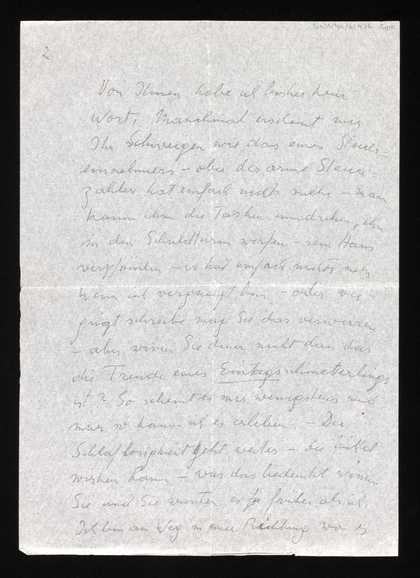 2
Von Ihnen habe ich bisher kein
Wort, Manchmal erscheint mir
Ihr Schweigen wie das eines Steuer-
einnehmers – aber der arme Steuer-
zahler hat einfach nichts mehr – man
kann ihm die Taschen umdrehen, ihn
in den Schuldturm werfen – sein Haus
verpfänden – er hat einfach nichts mehr
wenn ich vergnügt bin – oder ver-
gnügt schreibe mag Sie das verwirren
– aber wissen Sie denn nicht dass das
die Freude eines Eintagsschmetterlings
ist? So scheint es mir wenigstens und
nur so kann ich es erleben. – Die
Schlaflosigkeit geht weiter – die Mittel
wirken kaum – was das bedeutet wissen
Sie und Sie wussten es ja früher als ich.
Ich bin am Weg in eine Richtung wo es